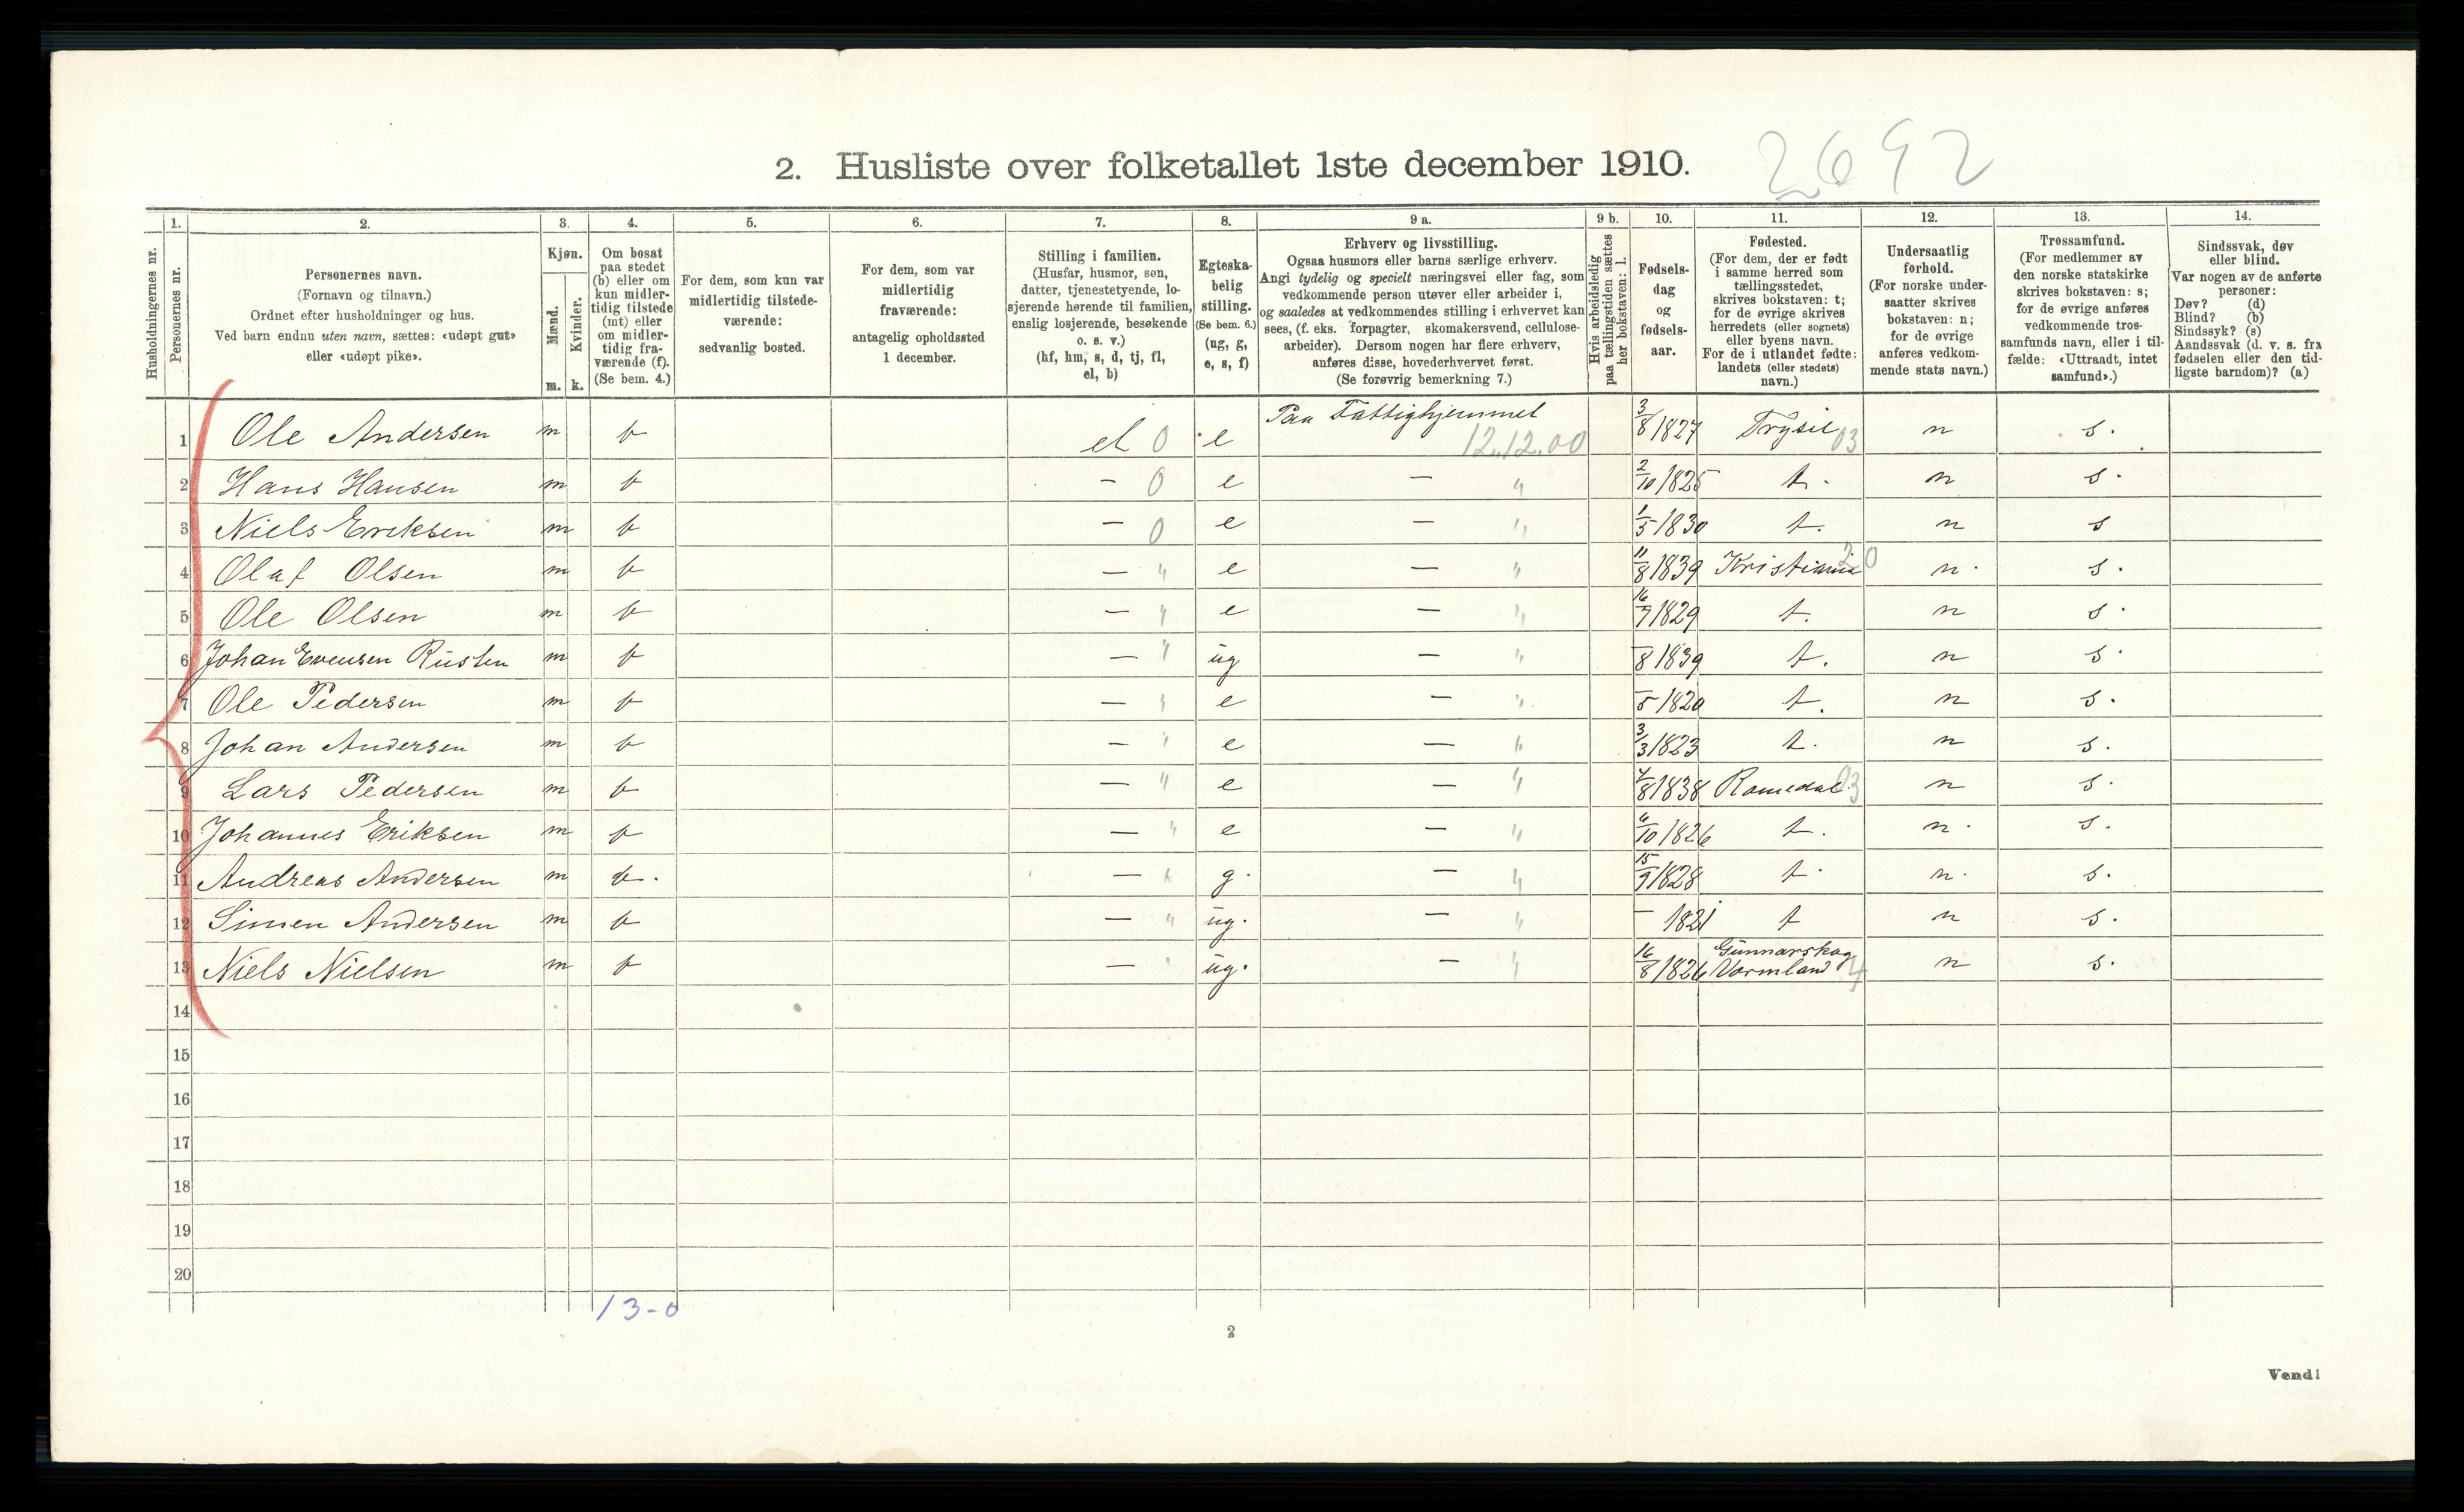 2. Husliste over folketallet 1ste december 1910. 2692
1. 2. 3. 4. 5. 6. 7. 8. 9 a. 9 b. 10. 11. 12. 13. 14.
Husholdningernes nr.
Personernes nr.
Personernes navn.
(Fornavn og tilnavn.)
Ordnet efter husholdninger og hus.
Ved barn endnu uten navn, sættes: «udøpt gut»
eller «udøpt pike».
Kjøn.
Mænd.
Kvinder.
m. k.
Om bosat
paa stedet
(b) eller om
kun midler-
tidig tilstede
(mt) eller
om midler-
tidig fra-
værende (f).
(Se bem. 4.)
For dem, som kun var
midlertidig tilstede-
værende:
sedvanlig bosted.
For dem, som var
midlertidig
fraværende:
antagelig opholdssted
1 december.
Stilling i familien.
(Husfar, husmor, søn,
datter, tjenestetyende, lo-
sjerende hørende til familien,
enslig losjerende, besøkende
o. s. v.)
(hf, hm, s, d, tj, fl,
el, b)
Egteska-
belig
stilling.
(Se bem. 6.)
(ug, g,
e, s, f)
Erhverv og livsstilling.
Ogsaa husmors eller barns særlige erhverv.
Angi tydelig og specielt næringsvei eller fag, som
vedkommende person utøver eller arbeider i,
og saaledes at vedkommendes stilling i erhvervet kan
sees, (f. eks. forpagter, skomakersvend, cellulose-
arbeider). Dersom nogen har flere erhverv,
anføres disse, hovederhvervet først.
(Se forøvrig bemerkning 7.)
Hvis arbeidsledig
paa tællingstiden sættes
her bokstaven: l.
Fødsels-
dag
og
fødsels-
aar.
Fødested.
(For dem, der er født
i samme herred som
tællingsstedet,
skrives bokstaven: t;
for de øvrige skrives
herredets (eller sognets)
eller byens navn.
For de i utlandet fødte:
landets (eller stedets)
navn.)
Undersaatlig
forhold.
(For norske under-
saatter skrives
bokstaven: n;
for de øvrige
anføres vedkom-
mende stats navn.)
Trossamfund.
(For medlemmer av
den norske statskirke
skrives bokstaven: s;
for de øvrige anføres
vedkommende tros-
samfunds navn, eller i til-
fælde: «Uttraadt, intet
samfund».)
Sindssvak, døv
eller blind.
Var nogen av de anførte
personer:
Døv? (d)
Blind? (b)
Sindssyk? (s)
Aandssvak (d. v. s. fra
fødselen eller den tid-
ligste barndom)? (a)
1 Ole Andersen m b el 0 e Paa Fattighjemmet 12.12.00 3/8 1827 Trysil 03 n s.
2 Hans Hansen m b – 0 e – " 2/10 1825 t. n s.
3 Niels Eriksen m b – 0 e – " 1/5 1830 t. n s
4 Olaf Olsen m b – " e – " 11/8 1839 Kristiania 20 n. s.
5 Ole Olsen m b – " e – " 16/7 1829 t. n s.
6 Johan Evensen Rusten m b – " ug – " –/8 1839 t. n s.
7 Ole Pedersen m b – " e – " –/5 1820 t. n s.
8 Johan Andersen m b – " e – " 3/3 1823 t. n s.
9 Lars Pedersen m b – " e – " 4/8 1838 Romedal 03 n s.
10 Johannes Eriksen m b – " e – " 6/10 1826 t. n. s.
11 Andreas Andersen m b. – " g. – " 15/9 1828 t. n. s.
12 Simen Andersen m b – " ug. – " – 1821 t n s.
13 Niels Nielsen m b – " ug. – " 16/8 1826 Gunnarskog
Varmland 4 n s.
14
15
16
17
18
19
20
13-0
2
Vend!